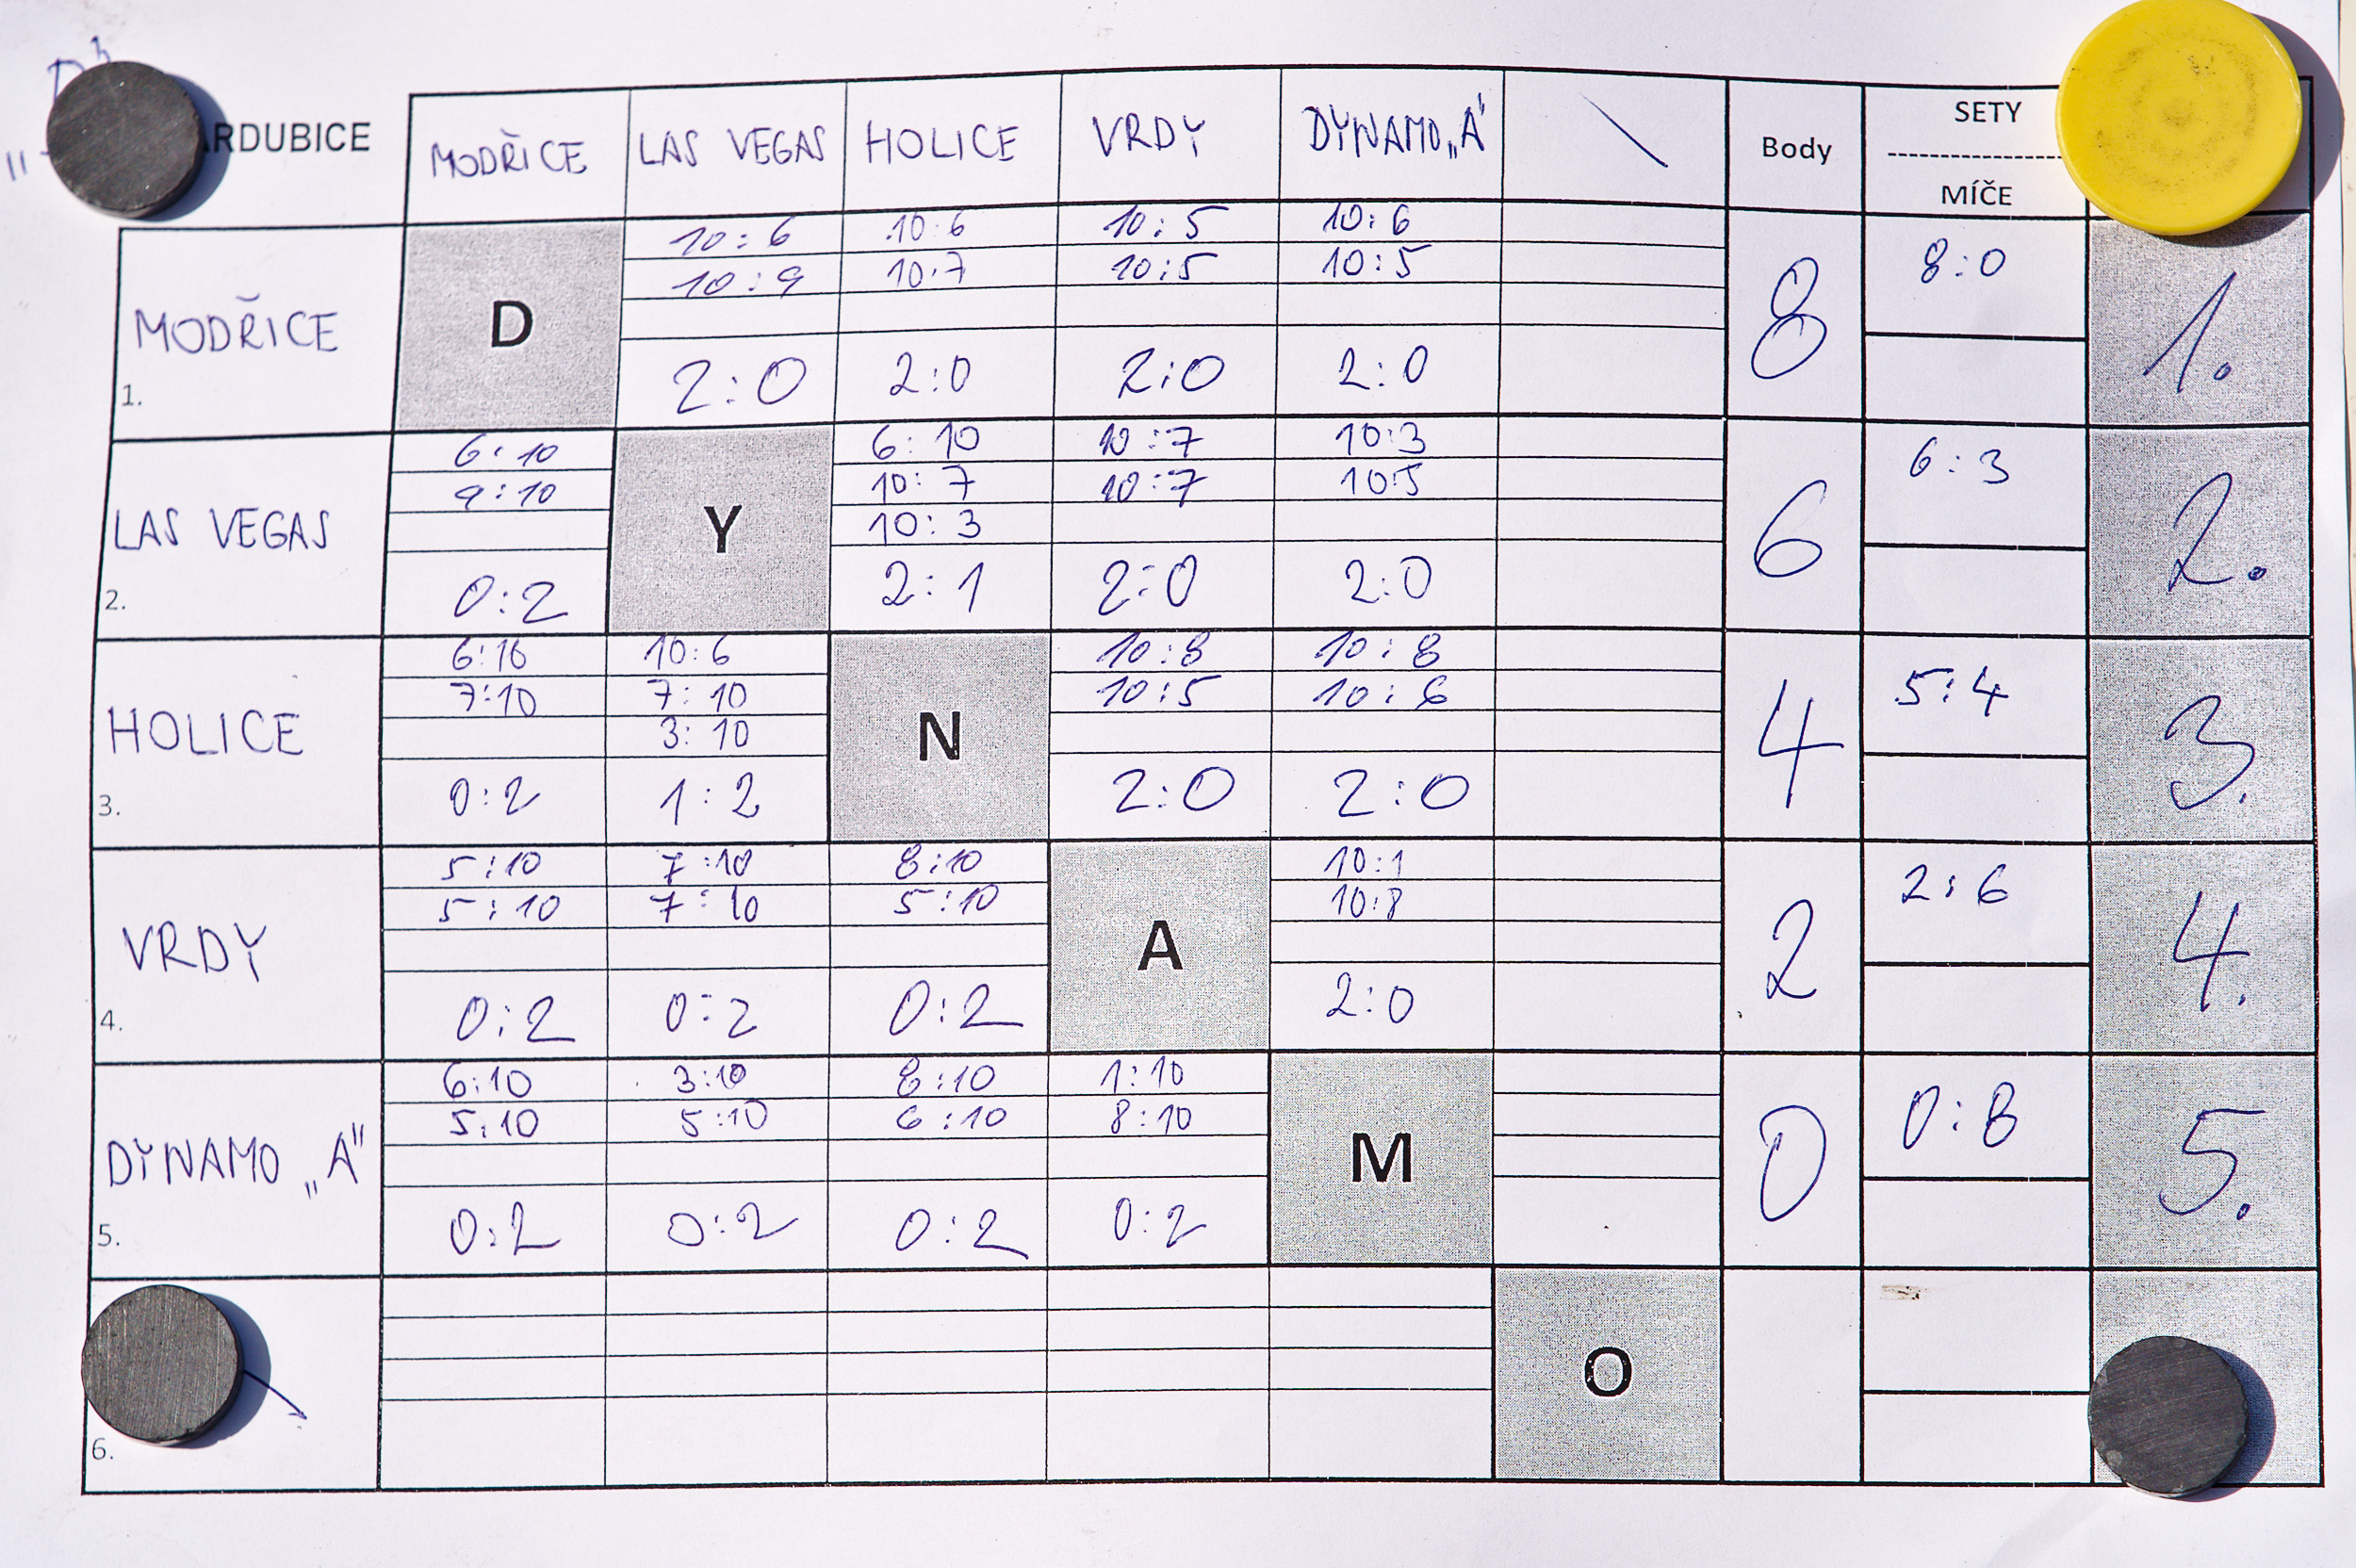 ARDUBICE MODŘICE LAS VEGAS HOLICE VRDY DYNAMO „A" Body SETY
MÍČE
10:6 10:6 10:5 10:6
10:9 10:7 10:5 10:5
1. MODŘICE D 2:0 2:0 2:0 2:0 8 8:0 1.
6:10 6:10 10:7 10:3
9:10 10:7 10:7 10:5
10:3
2. LAS VEGAS 0:2 Y 2:1 2:0 2:0 6 6:3 2.
6:10 10:6 10:8 10:8
7:10 7:10 10:5 10:6
3:10
3. HOLICE 0:2 1:2 N 2:0 2:0 4 5:4 3.
5:10 7:10 8:10 10:1
5:10 7:10 5:10 10:8
4. VRDY 0:2 0:2 0:2 A 2:0 2 2:6 4.
6:10 3:10 8:10 1:10
5:10 5:10 6:10 8:10
5. DYNAMO „A" 0:2 0:2 0:2 0:2 M 0 0:8 5.
6. O